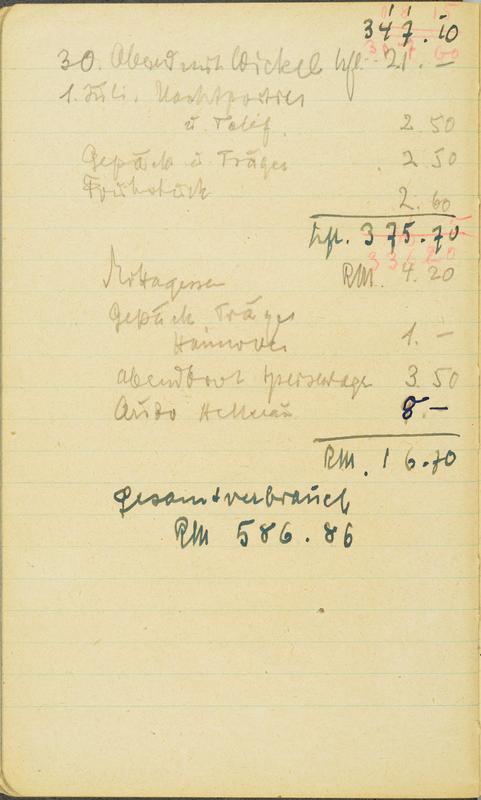 347.10
30. Abend mit Wickel hfl. 21.—
1. Juli. Nachtportier
u. Telef. 2.50
Gepäck u. Träger 2.50
Frühstück 2.60
hfl. 375.70
Mittagessen RM. 4.20
Gepäck Träger
Hannover 1.—
Abendbrot Speisewage 3.50
Auto 8.—
RM. 16.70
Gesamtverbrauch
RM 586.86